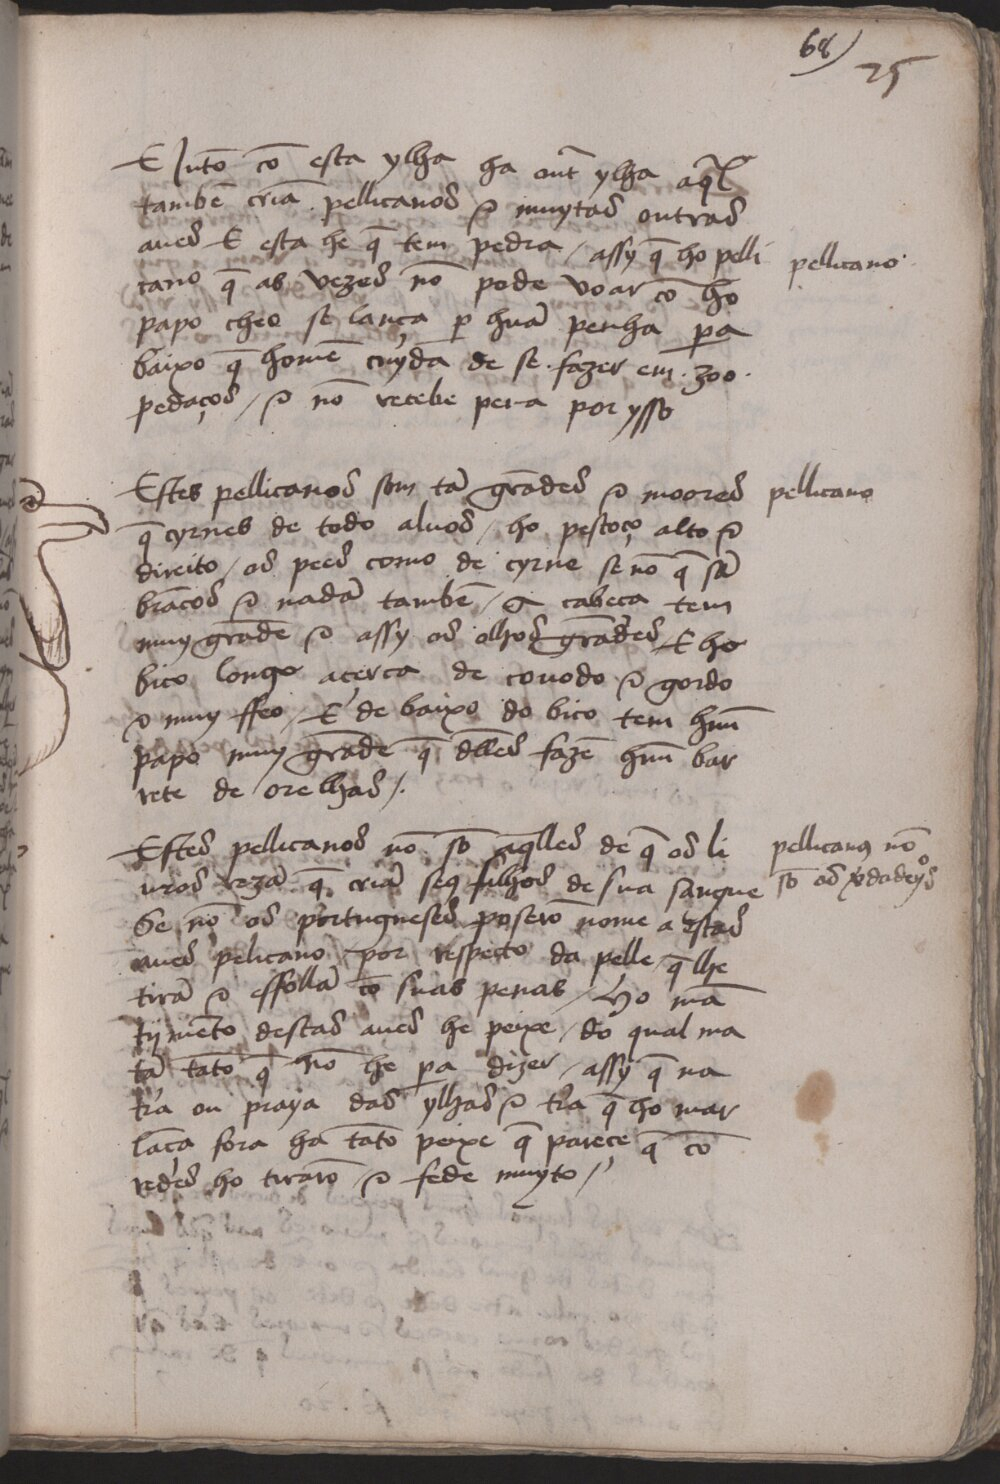 68)
25
E Jũto cõ esta ylha ha outͬ ylha aq̃l
tambẽ criã pellicanos & muytas outras
aues E esta he q̃ tem pedra / assy q̃ ho pelli
pellicano
cano q̃ as vezes nõ pode voar cõ ho
papo cheo se lança ꝑ hũa penha ꝑa
baixo q̃ homẽ cuyda de se fazer em .300.
pedaços / & nõ recebe pena por ysso
Estes pellicanos som tã grãdes & moores
pellicano
q̃ cyrnes de todo aluos / ho pescoço alto &
direito / os pees como de cyrne se nõ q̃ sã
brãcos & nadã tambẽ / A cabeca tem
muy grãde & assy os olhos grãdes E ho
bico longo açerca de couodo & gordo
& muy ffeo / E de baixo do bico tem hũu
papo muy grãde q̃ dlles fazẽ hũu bar
rete de orelhas /.
Estes pellicanos nõ sõ aq̃lles de q̃ os li
pellicanos nõ
uros rezã q̃ criã seus filhos de sua sangue
sõ os ṽdadeyºs
Se nõ os portugueses poserõ nome a estas
aues pelicano / por respecto da pelle / q̃ lhe
tirã & esfollã cõ suas penas / Ho mã
tijmẽto destas aues he peixe / do qual ma
tã tãto q̃ nõ he ꝑa dizer / assy q̃ na
tr̃a ou praya das ylhas & tr̃a q̃ ho mar
lãça fora ha tãto peixe q̃ pareçe q̃ cõ
redes ho tirarõ & fede muyto /